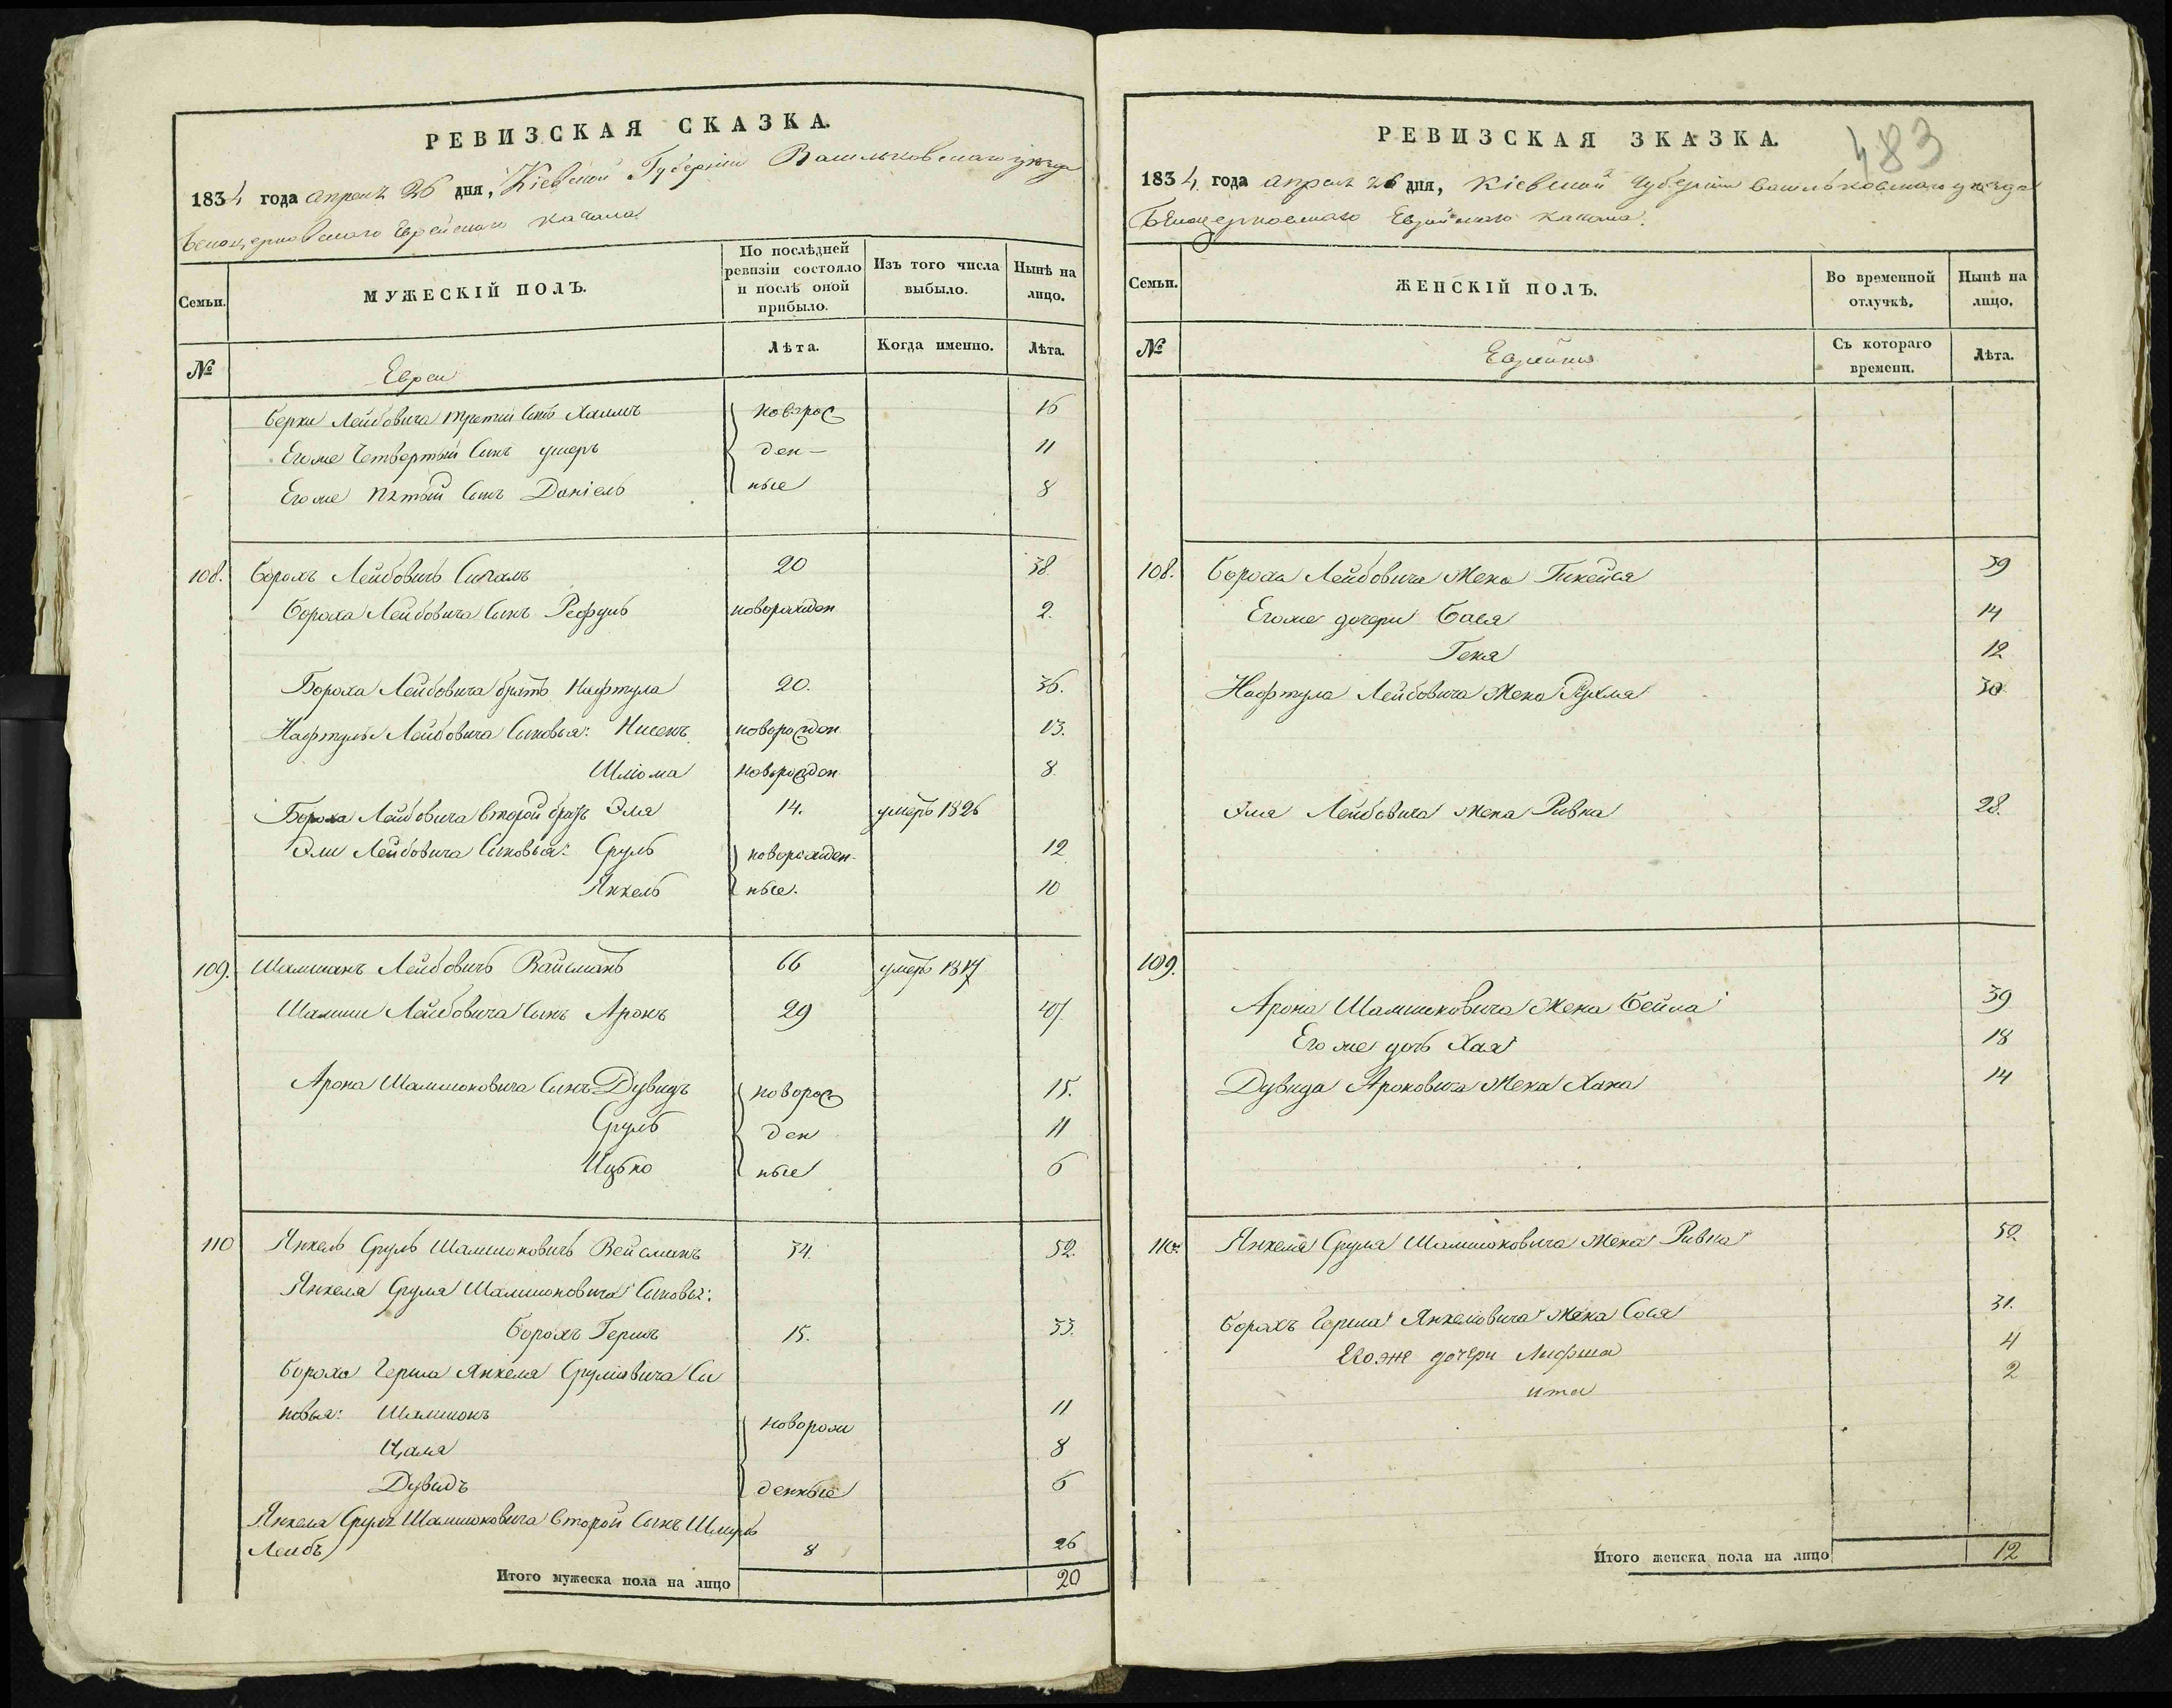 РЕВИЗСКАЯ СКАЗКА.
1834 года апреля 26 дня, Кіевской Губерніи Васильковскаго уезда
Белоцерковскаго Еврейскаго кагала
Семьи.
МУЖЕСКІЙ ПОЛЪ.
По послѣдней ревизіи состояло и послѣ оной прибыло.
Изъ того числа выбыло.
Нынѣ на лицо.
№
Евреи
Лѣта.
Когда именно.
Лѣта.
Берки Лейбовича третий сынъ Хаимъ новорож 16
Егоже Четвертый Сынъ умеръ ден- 11
Егоже пятый Сынъ Даніель ные 8
108. Борохъ Лейбовичъ Сигалъ 20 38
Бороха Лейбовича Сынъ Рефуль новорожден 2.
Бороха Лейбовича братъ Нафтула 20. 36.
Нафтулы Лейбовича Сыновья: Нисенъ новорожден 13.
Шліома новорожден 8.
Бороха Лейбовича второй братъ Эля 14. умеръ 1826
Эли Лейбовича Сыновья: Сруль новорожден- 12
Янкель ные. 10
109. Шамшонъ Лейбовичъ Вайсманъ 66 умеръ 1817
Шамши Лейбовича Сынъ Аронъ 29 47
Арона Шамшоновича Сынъ Дувидъ новорож 15.
Сруль ден 11
Ицько ные 6
110 Янкель Сруль Шамшоновичъ Вейсманъ 34. 52.
Янкеля Сруля Шамшоновича Сыновья:
Борохъ Гершъ 15. 33.
Бороха Герша Янкеля Срулювича Сы
новья: Шамшонъ новорож 11
Цаля 8
Дувидъ денные 6
Янкеля Сруля Шамшоновича второй Сынъ Шмуль
Лейбъ 8 26
Итого мужеска пола на лицо 20
483
РЕВИЗСКАЯ ЗКАЗКА.
1834 года апреля 26 дня, Кіевской Губерніи Васильковскаго уезда
Белоцерковскаго Еврейскаго кагала.
Семьи.
ЖЕНСКІЙ ПОЛЪ.
Во временной отлучкѣ.
Нынѣ на лицо.
№
Еврейки
Съ котораго времени.
Лѣта.
108. Бороха Лейбовича Жена 39
Егоже дочери Бася 14
Геня 12
Нафтула Лейбовича Жена Рухля 30
Эля Лейбовича Жена Ривка 28.
109.
Арона Шамшоновича Жена Бейла 39
Его же дочь Хая 18
Дувида Ароновича Жена Хана 14
110. Янкеля Сруля Шамшоновича Жена Ривка 50.
Борохъ Герша Янкелювича Жена Сося 31.
Егоже дочери Лифша 4
ита 2
Итого женска пола на лицо 12